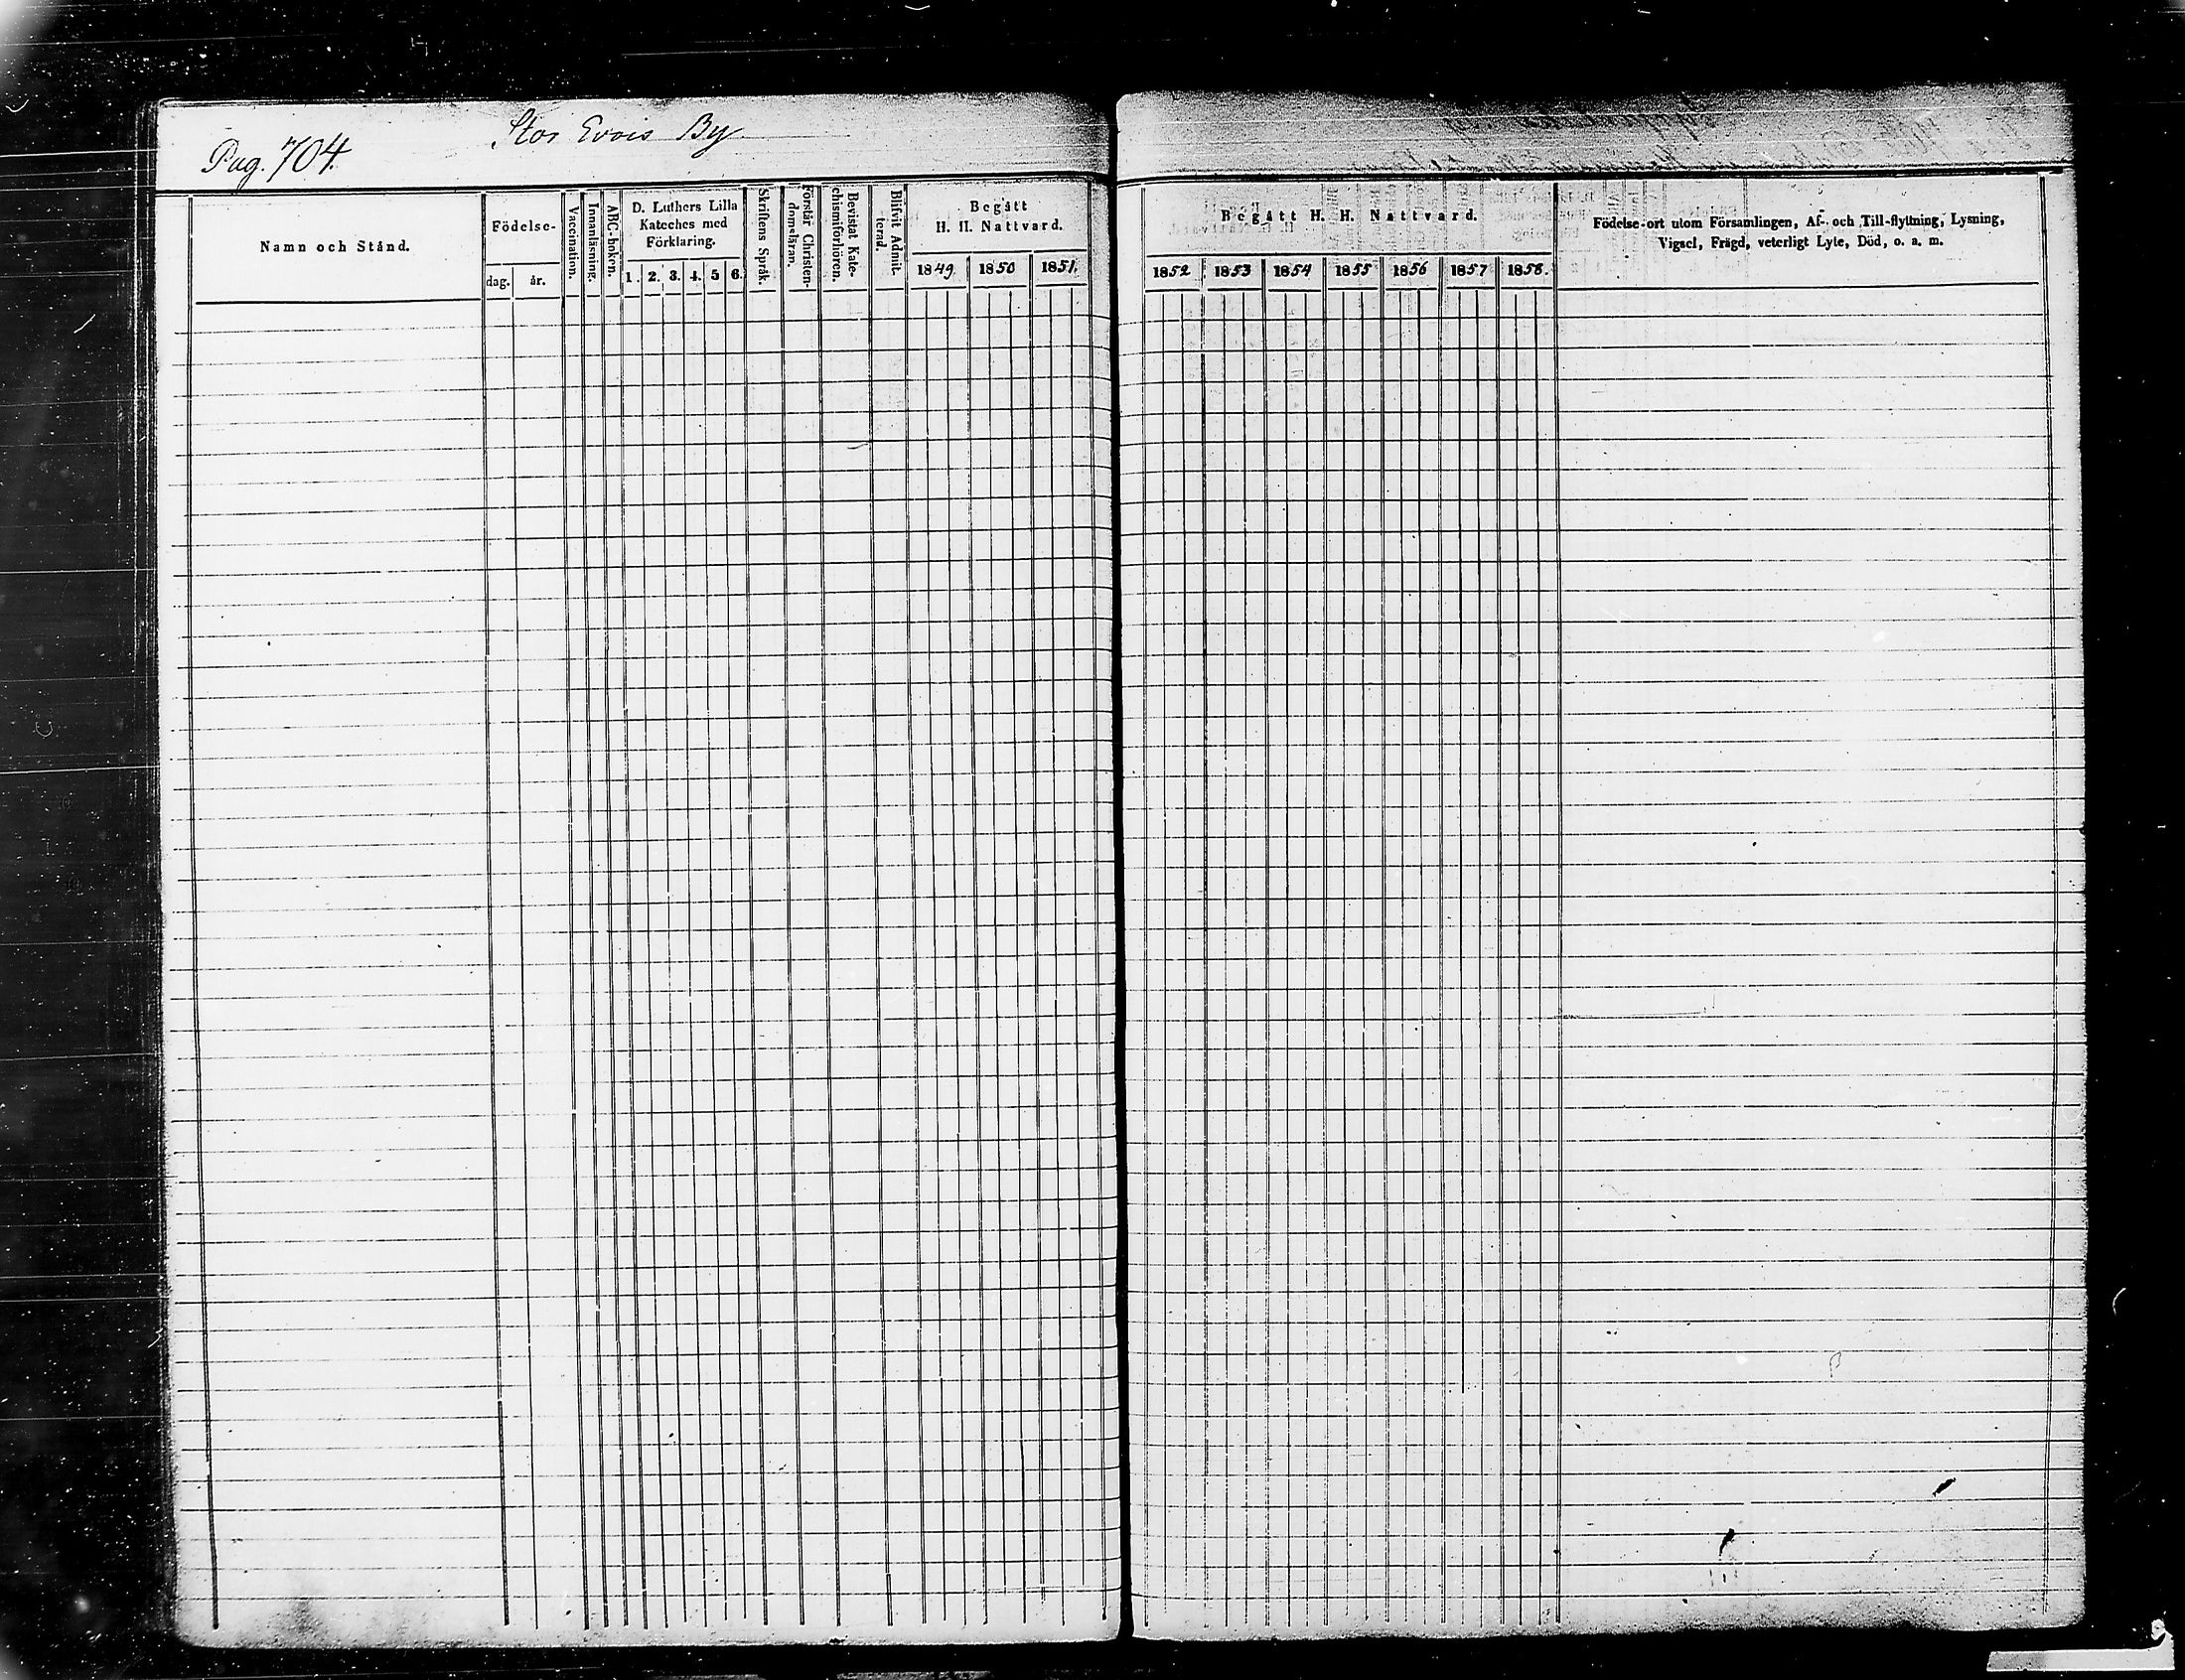 Pag. 704.
Stor Evois By
Namn och Stånd.
Födelse-
dag.
år.
Vaccination.
Innanläsning.
ABC-boken.
D. Luthers Lilla
Kateches med
Förklaring.
1. 2. 3. 4. 5 6.
Skriftens Språk.
Förstår Christen-
domsläran.
Bevistat Kate-
chismiförhören.
Blifvit Admit-
terad.
Begått
H. H. Nattvard.
1849. 1850 1851.
Begått H. H. Nattvard.
1852 1853 1854 1855 1856 1857 1858.
Födelse-ort utom Församlingen, Af- och Till-flyttning, Lysning,
Vigsel, Frägd, veterligt Lyte, Död, o. a. m.